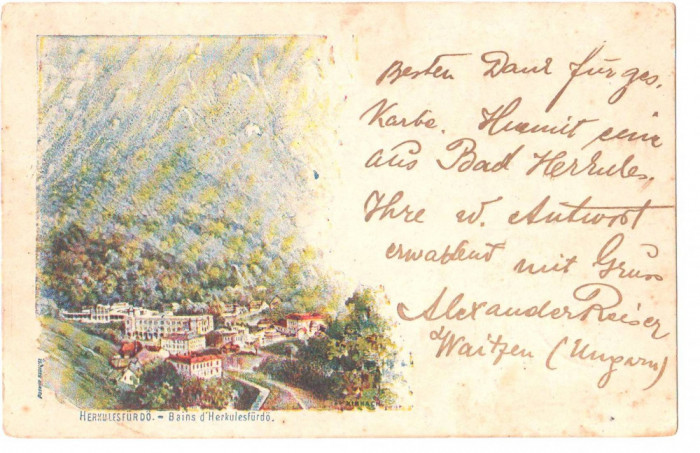 Besten Dank für ges.
Karte. Hiermit eine
aus Bad Herkules.
Ihre w. Antwort
erwartend mit Gruss
Alexander Reiser
Waitzen (Ungarn)
HERKULESFÜRDŐ. – Bains d'Herkulesfürdő.